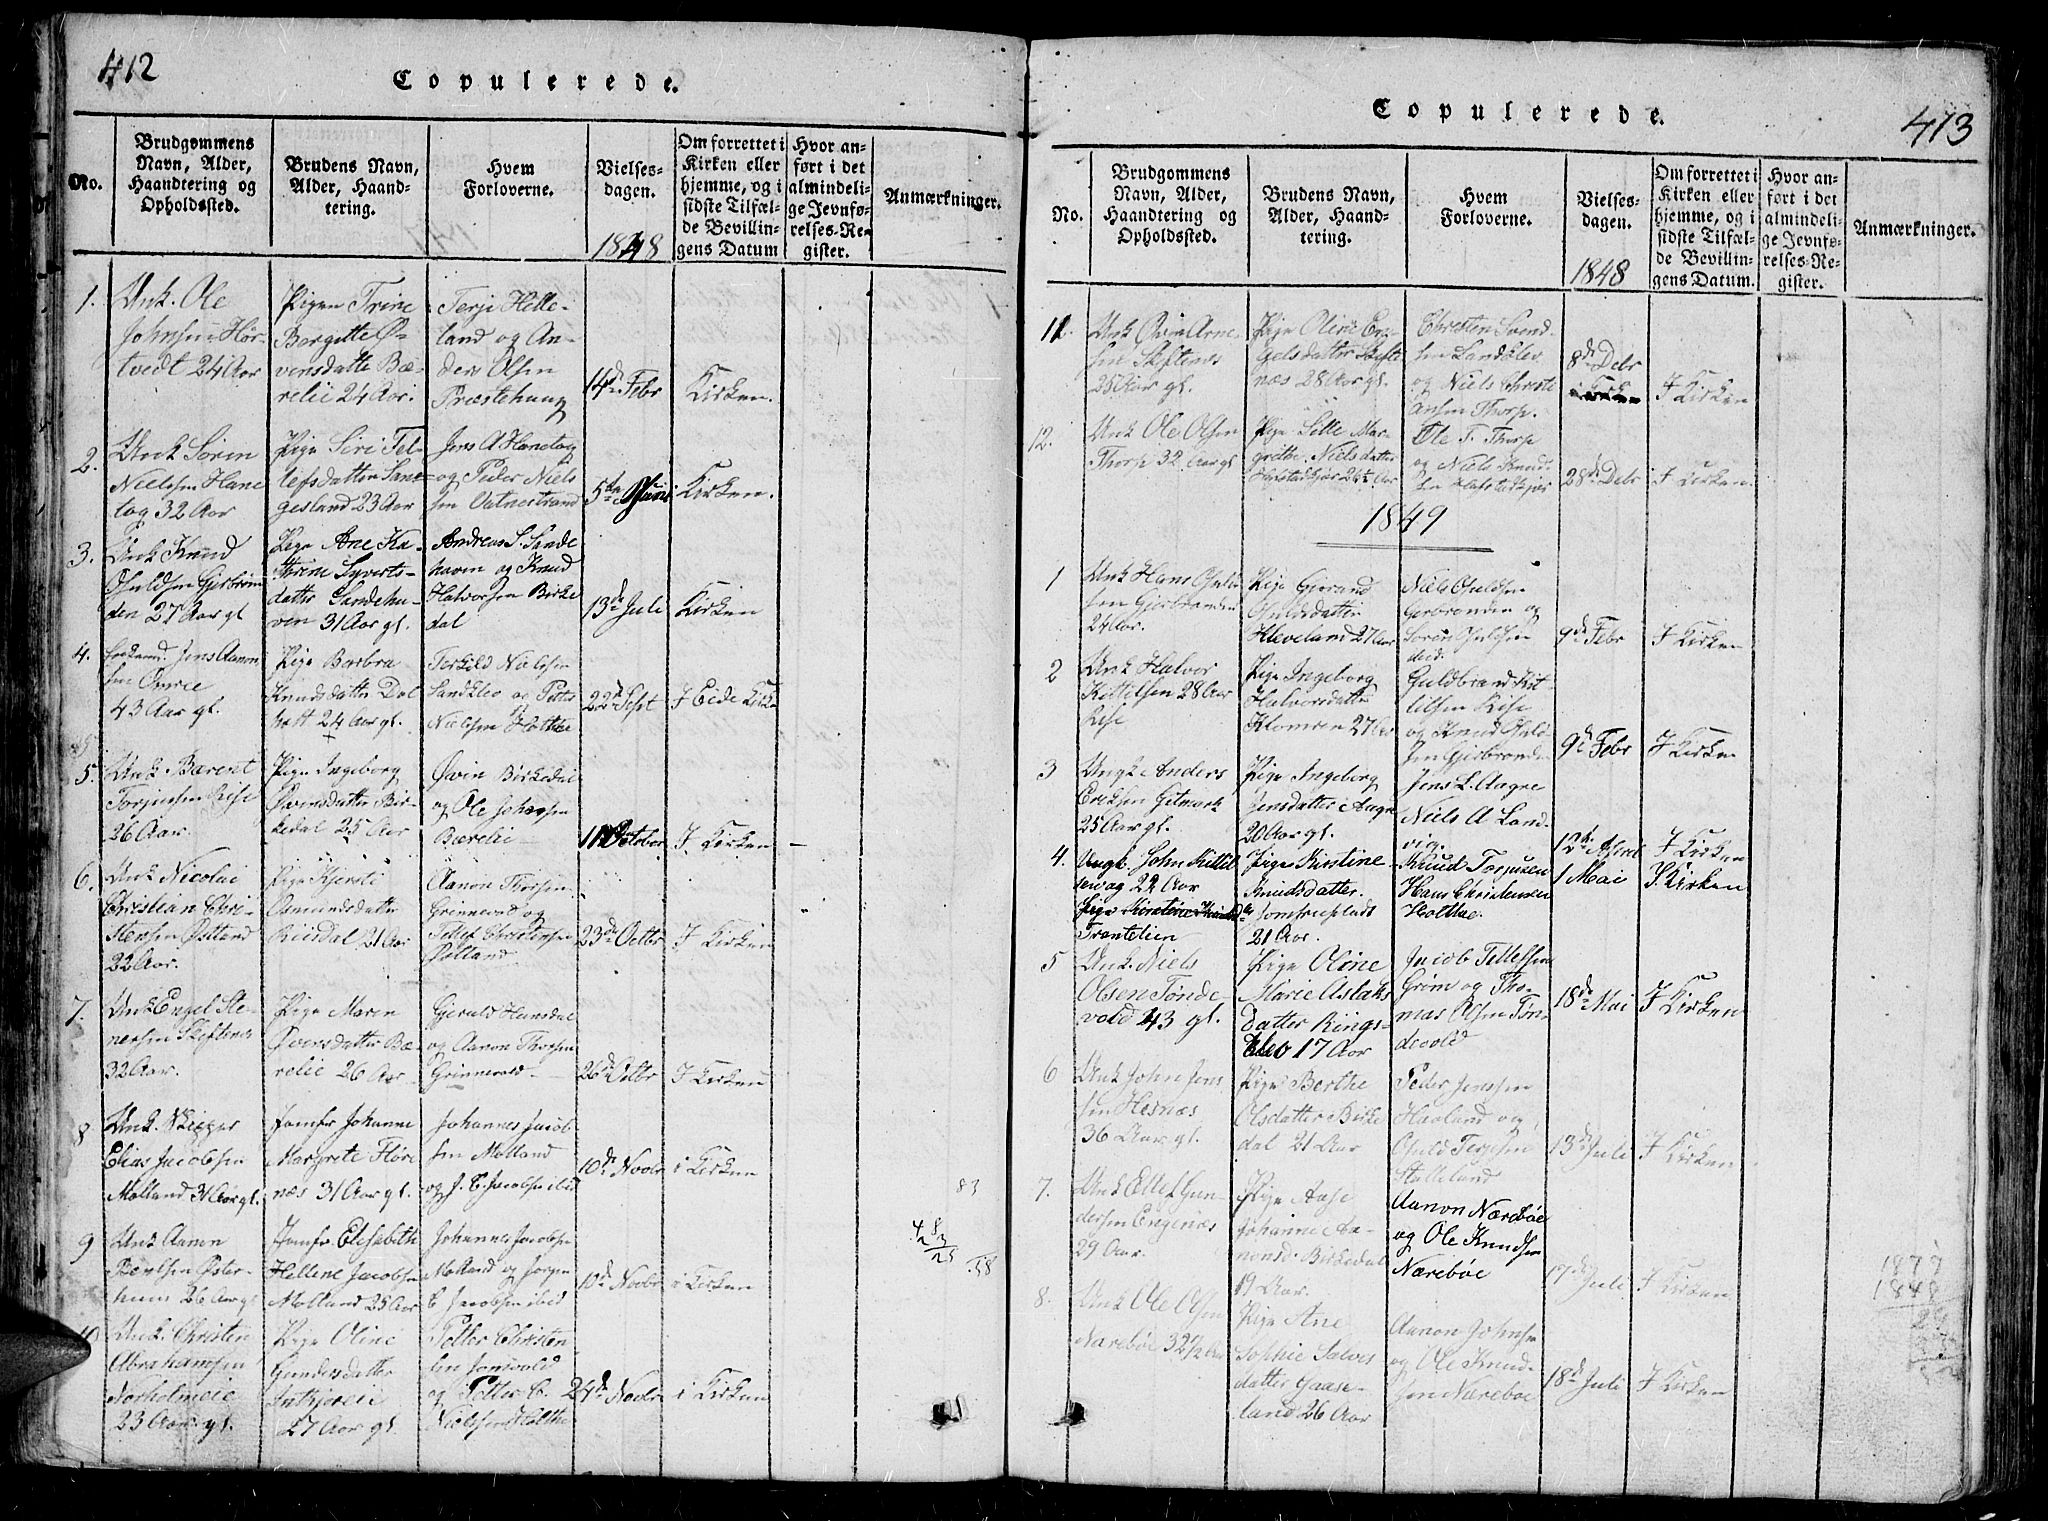 412
Copulerede.
No.
Brudgommens
Navn, Alder,
Haandtering og
Opholdssted.
Brudens Navn,
Alder, Haand-
tering.
Hvem
Forloverne.
Vielses-
dagen.
1848
Om forrettet i
Kirken eller
hjemme, og i
sidste Tilfæl-
de Bevillin-
gens Datum
Hvor an-
ført i det
almindeli-
ge Jevnfø-
relses-Re-
gister.
Anmærkninger.
1.
Unk. Ole
Johnsen Hør-
tvedt 24 Aar
Pigen Trine
Børgette Ø-
vensdatte Bæ-
relie 24 Aar
Terje Helle-
land og An-
ders Olsen
Præstehaug
14de Febr
Kirken.
2.
Unk Søren
Nielsen Hane
tog 32 Aar
Pige Siri Tel-
lefsdatter Sane-
gesland 23 Aar
Jens A Hanetog
og Peder Niels
sen Vatnestrand
5te Juni
Kirken.
3.
Unk Knud
Osuldsen Gjerbrøn
den 27 Aar gl
Pige Ane Ka-
thrine Syverts-
datter Sandeha-
ven 31 Aar gl.
Andreas S. Sande
haven og Knud
Halvorsen Birke
dal
13de Juli
Kirken
4.
Enkemd. Jens Aanon
sen
43 Aar gl.
Pige Barbra
Knudsdatter Dal
holt 24 Aar gl.
Terkild Nielsen
Sandklev og Peter
Nielsen Holthe
22de Sept
I Eide Kirke
5
Unk Bærent
Torjussen Rise
26 Aar.
Pige Ingeborg
Øvensdatter Bir-
kedal 25 Aar
Øvin Birkedal
og Ole Johnsen
Bærelie
11 October
I Kirken
6.
Unk Nicolai
Christian Chri-
stensen Østland
22 Aar.
Pige Kjersti
Osmundsdatter
Riisdal 21 Aar
Aanon Thorsen
Grinnevold og
Tellef Christensen
Østland
23de Octbr
I Kirken
7.
Unk Engel Ste-
nersen Skiftenes
32 Aar.
Pige Maren
Øvensdatter Bæ-
relie 26 Aar
Gjeruld Hunsdal
og Aanon Thorsen
Grinnevold
26de Octbr
I Kirken
8
Unk. Skipper
Elias Jacobsen
Molland 31 Aar gl.
Jomfr Johanne
Margrete Fløre
næs 31 Aar gl.
Johannes Jacob
sen Molland
og J. C. Jacobsen ibid
10de Novbr
i Kirken
83
9
Unk Aanon
Bentsen Øster-
huus 26 Aar gl
Jomfr Elisabeth
Hellene Jacobsen
Molland 25 Aar
Johannes Jacobsen
Molland og Jørgen
C Jacobsen ibid
10de Novbr
i Kirken
10
Unk. Christen
Abrahamsen
Norholmeie
23 Aar gl.
Pige Oline
Gundersdatter
Inthjøreie
27 Aar gl
Petter Christen
sen Jonsvold
og Petter C.
Nielsen Holthe
24de Novbr
i Kirken
413
Copulerede.
No.
Brudgommens
Navn, Alder,
Haandtering og
Opholdssted.
Brudens Navn,
Alder, Haand-
tering.
Hvem
Forloverne.
Vielses-
dagen.
1848
Om forrettet i
Kirken eller
hjemme, og i
sidste Tilfæl-
de Bevillin-
gens Datum.
Hvor an-
ført i det
almindeli-
ge Jevnfø-
relses-Re-
gister.
Anmærkninger.
11.
Unk Øvin Arne
sen Skiftenes
25 Aar gl.
Pige Oline En
gelsdatter Skifte
næs 28 Aar gl.
Christen Svend
sen Landklev
og Niels Christi
ansen Thorp.
8de Debr
I Kirken
12.
Unk Ole Olsen
Thorp 32 Aar gl
Pige Sille Mar-
grethe Nielsdatter
Hafstadkjær 26½ Aar
Ole T. Thorp
og Niels Knud-
sen Hafstadkjær
28de Debr
I Kirken.
1849
1
Unk Hans Osuld
sen Gjerbrønden
24 Aar.
Pige Gjerand
Osuldsdatter
Kleveland 27 Aar
Niels Osuldsen
Gerbrønden og
Søren Osuldsen
ibid.
9de Febr
I Kirken
2
Unk Halvor
Kittelsen 28 Aar
Rise
Pige Ingeborg
Halvorsdatter
Klomren 27 Aar
Guldbrand Kit-
telsen Rise
og Knud Osuld-
sen Gjerbrønden
9de Febr
I Kirken
3
Ungk Anders
Eriksen Gitmark
25 Aar gl.
Pige Ingeborg
Jensdatter Aagre
20 Aar gl.
Jens L. Aagre
Niels A Land-
vig.
12te April
I Kirken
4.
Ungk. John Kittel
sen og 22 Aar
Pige Kirstine Knuds
Trantelien
Pige Kirstine
Knudsdatter
Jomfrueplads
21 Aar.
Knud Torjusen
Hans Christensen
Holthe.
1 Mai
I Kirken
5
Unk. Niels
Olsen Tønde-
vold 43 gl.
Pige Oline
Marie Aslaks
datter Rings-
klev 17 Aar
Jacob Tellefsen
Grøm og Tho-
mas Olsen Tøn-
devold
18de Mai
I Kirken
6
Unk John Jens
sen Hesnæs
36 Aar gl.
Pige Berthe
Olsdatter Birke
dal 21 Aar
Peder Jenssen
Havland og
Osuld Terjesen
Stalleland
13de Juli
I Kirken
7.
Unk Ellef Gun-
dersen Engenæs
29 Aar.
Pige Aase
Johanne Aa-
nonsd. Birkedal
19 Aar.
Aanon Nærebøe
og Ole Knudsen
Nærebøe
17de Juli
I Kirken
1877
1848
8.
Unk Ole Olsen
Nærebøe 32½ Aar
Pige Ane
Sophie Salves
datter Gaase-
land 26 Aar
Aanon Johnsen
og Ole Knud-
sen Nærebøe
18de Juli
I Kirken